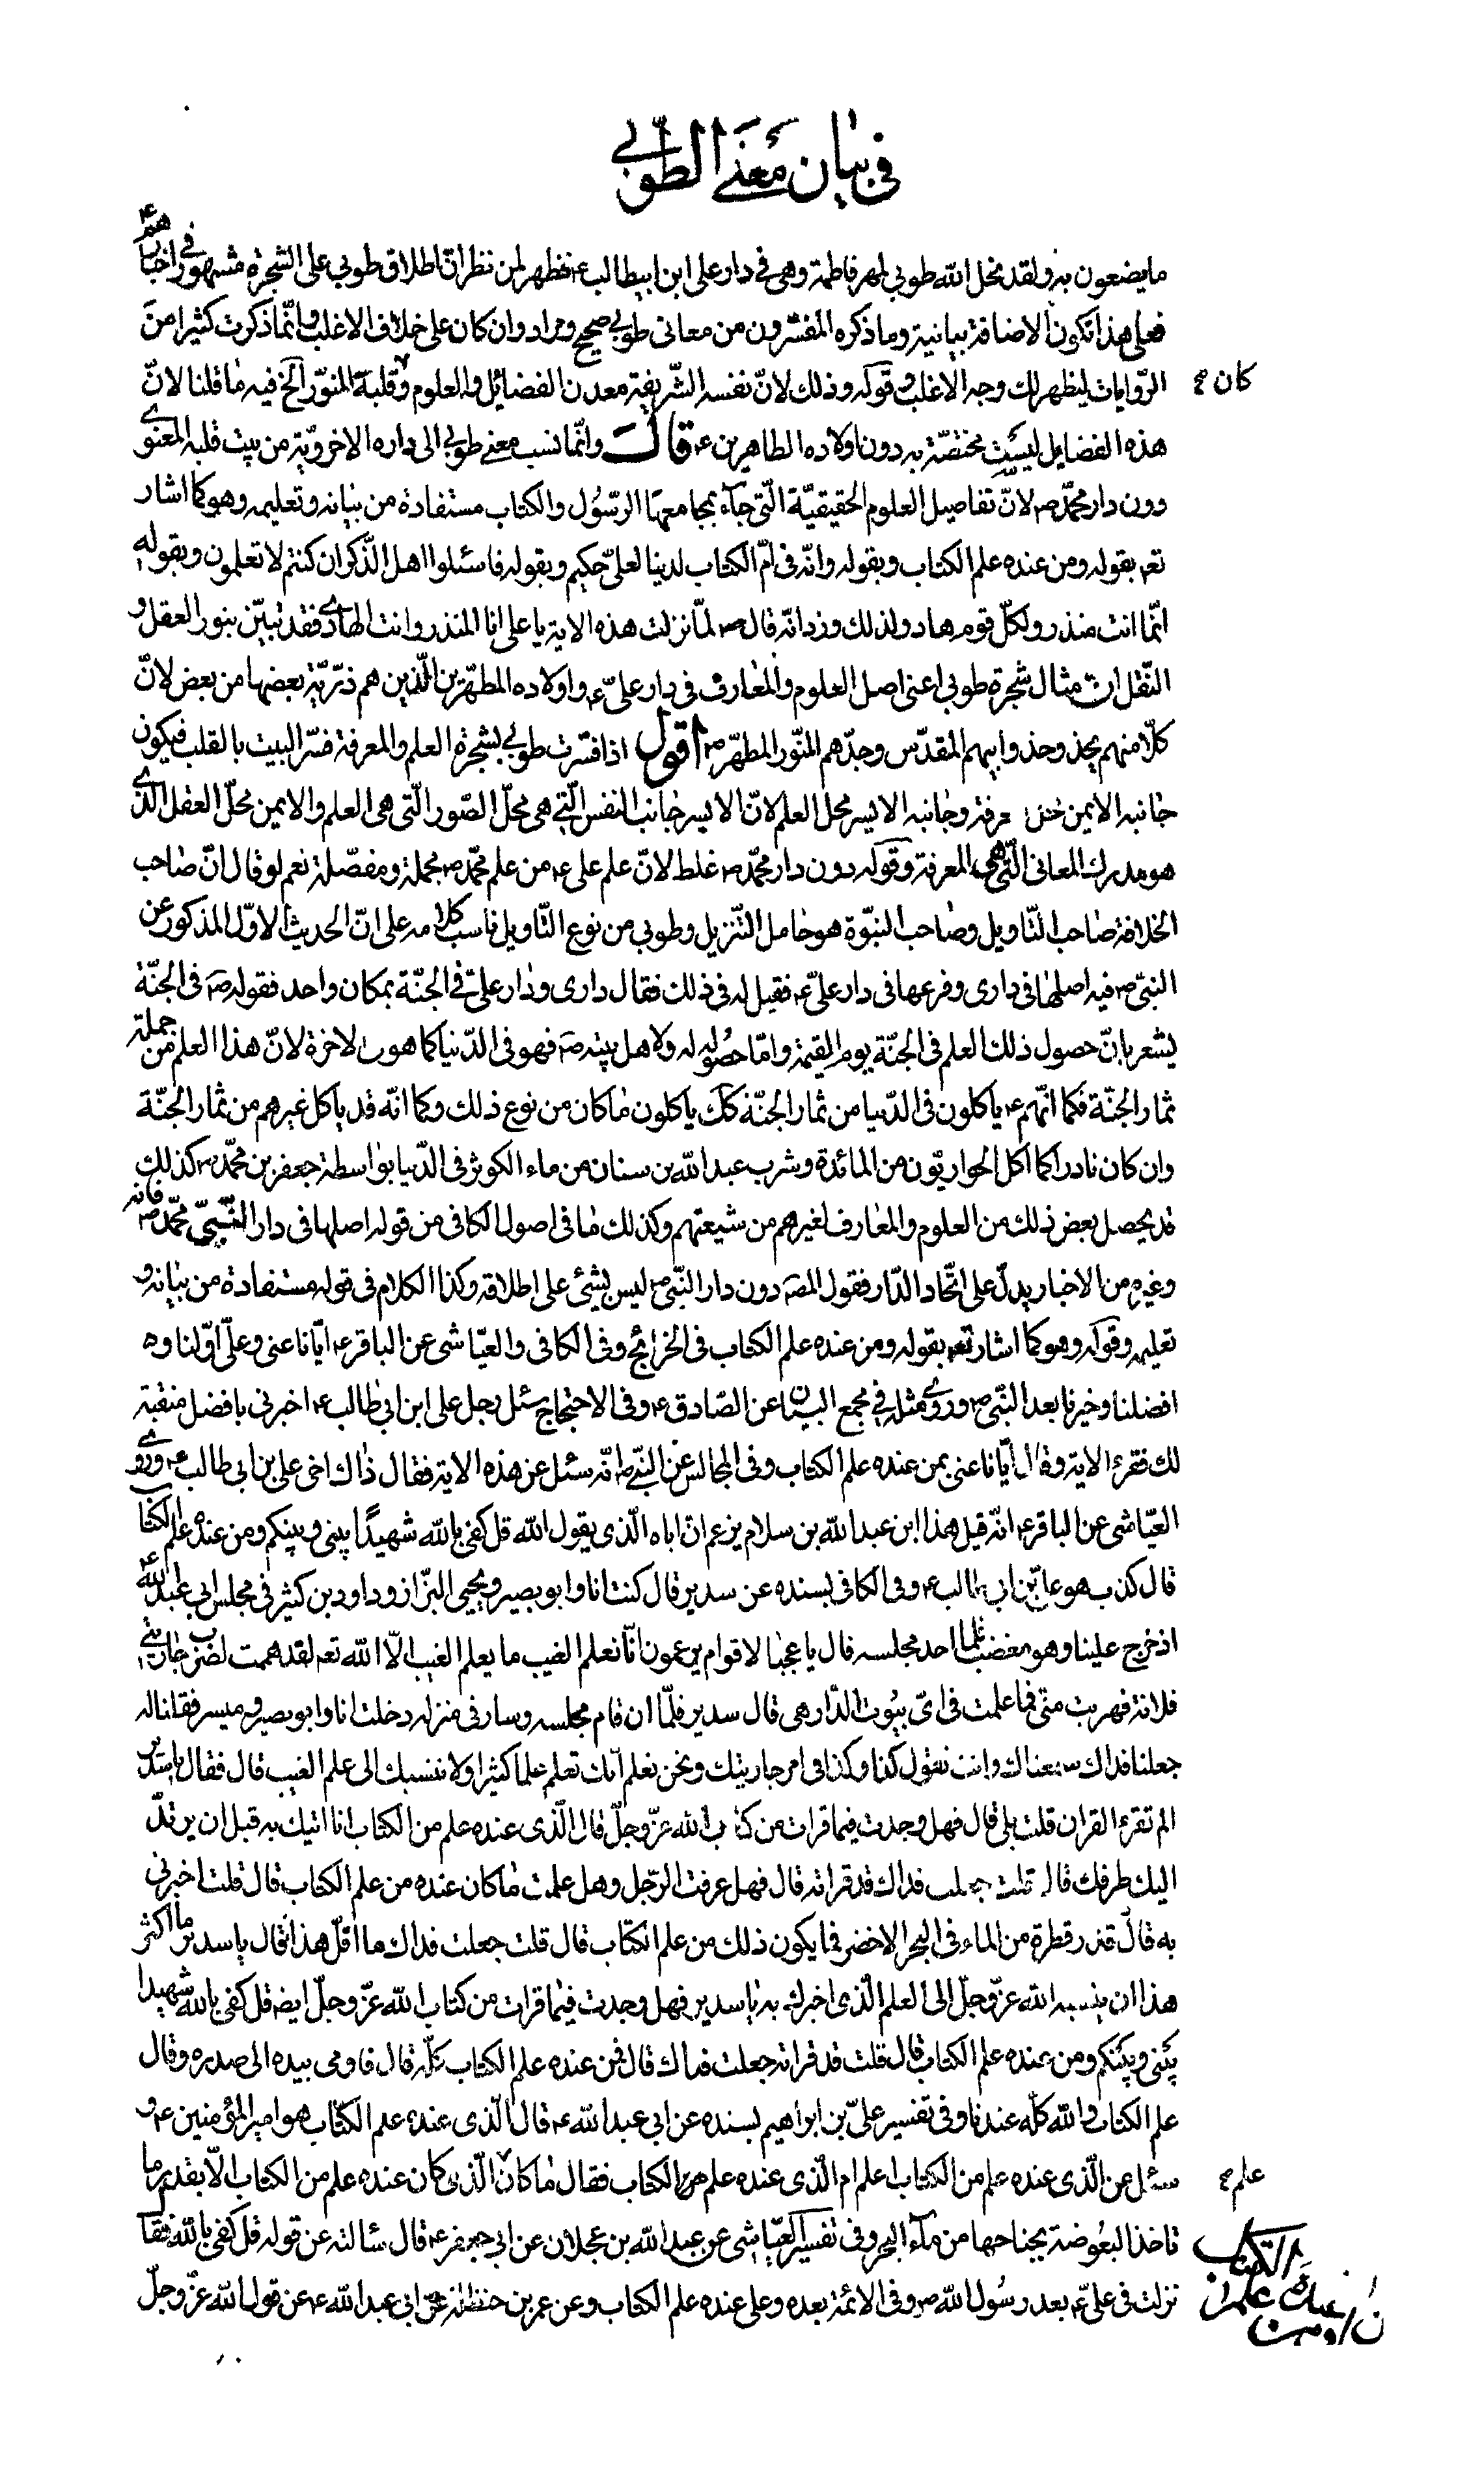 في بيان معنى الطوبى
ما يضعون به ولقد نحل الله طوبى لمهر فاطمة وهي في دار علي ابن ابيطالب ع فظهر لمن نظر انّ اطلاق طوبى على الشجرة مشهور في اخبارهم ع
فعلى هذا تكون الاضافة بيانية وما ذكره المفسّرون من معانى طوبى صحيح ومراد وان كان على خلاف الاغلب وانّما ذكرت كثيرا من
الرّوايات ليظهر لك وجه الاغلب وقوله وذلك لانّ نفسه الشّريفة معدن الفضائل والعلوم وقلبه المنوّر الخ فيه ما قلنا لانّ
كان
هذه الفضايل ليست مختصّة به دون اولاده الطاهرين ع قال وانّما نسب معنى طوبى الى داره الاخرويّة من بيت قلبه المعنوي
دون دار محمّد ص لانّ تفاصيل العلوم الحقيقيّة الّتي جآء بمجامعها الرّسُول والكتاب مستفادة من بيانه وتعليمه وهو كما اشار
تعه بقوله ومن عنده علم الكتاب وبقوله وانّه في امّ الكتاب لدينا لعليّ حكيم وبقوله فاسئلوا اهل الذّكر ان كنتم لا تعلمون وبقوله
انّما انت منذر ولكلّ قوم هاد ولذلك ورد انّه قال ص لمّا نزلت هذه الاية يا علي انا المنذر وانت الهادي فقد تبيّن بنور العقل و
النّقل انّ مثال شجرة طوبى اعنى اصل العلوم والمعارف في دار عليّ ع واولاده المطهّرين الّذين هم ذرّيّة بعضها من بعض لانّ
كلّا منهم يحذو حذو ابيهم المقدّس وجدّهم المنّور المطهّر ص اقول اذا فسّرت طوبى بشجرة العلم والمعرفة فسّر البيت بالقلب فيكون
جانبه الايمن محل عرفة وجانبه الايسر محل العلم لانّ الايسر جانب النفس الّتي هي محلّ الصّور الّتي هي العلم والايمن محلّ العقل الذي
هو مدرك المعاني الّتي هي المعرفة وقوله دون دار محمّد ص غلط لانّ علم علي ع من علم محمّد ص مجملة ومفصّلة نعم لو قال انّ صاحب
الخلافة صاحب التّاويل وصاحب النبوّة هو حامل التّنزيل وطوبى من نوع التّاويل ناسب كلامه على انّ الحديث الاوّل المذكور عن
النبيّ ص فيه اصلها في داري وفرعها في دار عليّ ع فقيل له في ذلك فقال داري ودار عليّ في الجنّة بمكان واحد فقوله ص في الجنّة
يشعر بانّ حصول ذلك العلم في الجنّة يوم القيمة وامّا حصُوله له ولاهل بيته ص فهو في الدّنيا كما هو في الاخرة لانّ هذا العلم من جملة
ثمار الجنّة فكما انّهم ع ياكلون في الدّنيا من ثمار الجنّة كك ياكلون ما كان من نوع ذلك وكما انّه قد ياكل غيرهم من ثمار الجنّة
وان كان نادرا كما اكل الحواريّون من المائدة وشرب عبد الله بن سنان من ماء الكوثر في الدّنيا بواسطة جعفر بن محمّد ص كذلك
قد يحصل بعض ذلك من العلوم والمعارف لغيرهم من شيعتهم وكذلك ما في اصول الكافي من قوله اصلها في دار النّبيّ محمّد ص فانه
وغيره من الاخبار يدلّ على اتّحاد الدّار فقول المصّ دون دار النّبي ص ليس بشيئ على اطلاقه وكذا الكلام في قوله مستفادة من بيانه و
تعليمه وقوله وهو كما اشار تعه بقوله ومن عنده علم الكتاب في الخرائج وفي الكافي والعيّاشي عن الباقر ع ايّانا عنى وعليّ اوّلنا و
افضلنا وخيرنا بعد النّبي ص وروي مثله في مجمع البيان عن الصّادق ع وفي الاحتجاج سئل رجل علي ابن ابي طالب ع اخبرني بافضل منقبة
لك فقرء الاية وقال ايّانا عنى بمن عنده علم الكتاب وفي المجالس عن النبيّ ص انّه سئل عن هذه الاية فقال ذاك اخى علي بن ابي طالب ع وروي
العيّاشي عن الباقر ع انّه قيل هذا ابن عبد الله بن سلام يزعم ان اباه الّذي يقول الله قل كفى بالله شهيدًا بيني وبينكم ومن عنده علم الكتاب
قال كذب هو عليّ بن ابي طالب ع وفي الكافي بسنده عن سدير قال كنت انا وابو بصير ويحيى البزّاز وداود بن كثير في مجلس ابي عبد الله ع
اذ خرج علينا وهو مغضب فلما احد مجلسه قال يا عجبا لاقوام يزعمون انّا نعلم الغيب ما يعلم الغيب الّا الله تعه لقد هممت لضرب جاريتي
فلانة فهربت منّي فما علمت في ايّ بيُوت الدّار هي قال سدير فلمّا ان قام مجلسه وسار في منزله دخلت انا وابو بصير وميسر فقلنا له
جعلنا فداك سمعناك وانت تقول كذا وكذا في امر جاريتك ونحن نعلم انّك تعلم علما كثيرا ولا ننسبك الى علم الغيب قال فقال يا سدير
الم تقرء القران قلت بلى قال فهل وجدت فيما قرات من كتاب الله عزّ وجلّ قال الّذي عنده علم من الكتاب انا اتيك به قبل ان يرتدّ
اليك طرفك قال قلت جعلت فداك قد قراته قال فهل عرفت الرّجل وهل علمت ما كان عنده من علم الكتاب قال قلت اخبرني
به قال قدر قطرة من الماء في البحر الاخضر فما يكون ذلك من علم الكتاب قال قلت جعلت فداك ما اقلّ هذا فقال يا سدير ما اكثر
هذا ان ينسبه الله عزّ وجلّ الى العلم الّذي اخبرك به يا سدير فهل وجدت فيما قرات من كتاب الله عزّ وجلّ ايضه قل كفى بالله شهيدا
بيني وبينكم ومن عنده علم الكتاب قال قلت قد قراته جعلت فداك قال فمن عنده علم الكتاب كلّه قال فاومى بيده الى صدره وقال
علم الكتاب والله كلّه عندنا وفي تفسير عليّ بن ابراهيم بسنده عن ابي عبد الله ع قال الّذي عنده علم الكتاب هو امير المؤمنين ع و
سئل عن الّذي عنده علم من الكتاب اعلم ام الّذي عنده علم الكتاب فقال ما كان الّذي كان عنده علم من الكتاب الّا بقدر ما
علم
تاخذ البعُوضة بجناحها من مآء البحر وفي تفسير العيّاشي عن عبد الله بن عجلان عن ابي جعفر ع قال سالته عن قوله قل كفى بالله فقال
نزلت في عليّ ع بعد رسُول الله ص وفي الائمّة بعده وعلي عنده علم الكتاب وعن عمر بن حنظلة عن ابي عبد الله ع عن قول الله عزّ وجلّ
الكتاب